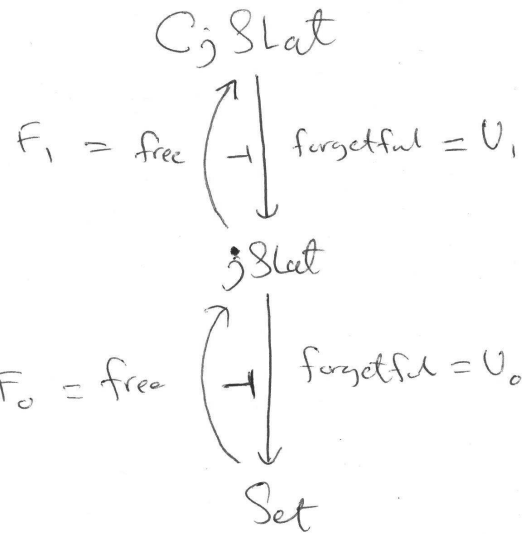 CjSlat
F₁ = free ⊣ forgetful = U₁
jSlat
F₀ = free ⊣ forgetful = U₀
Set